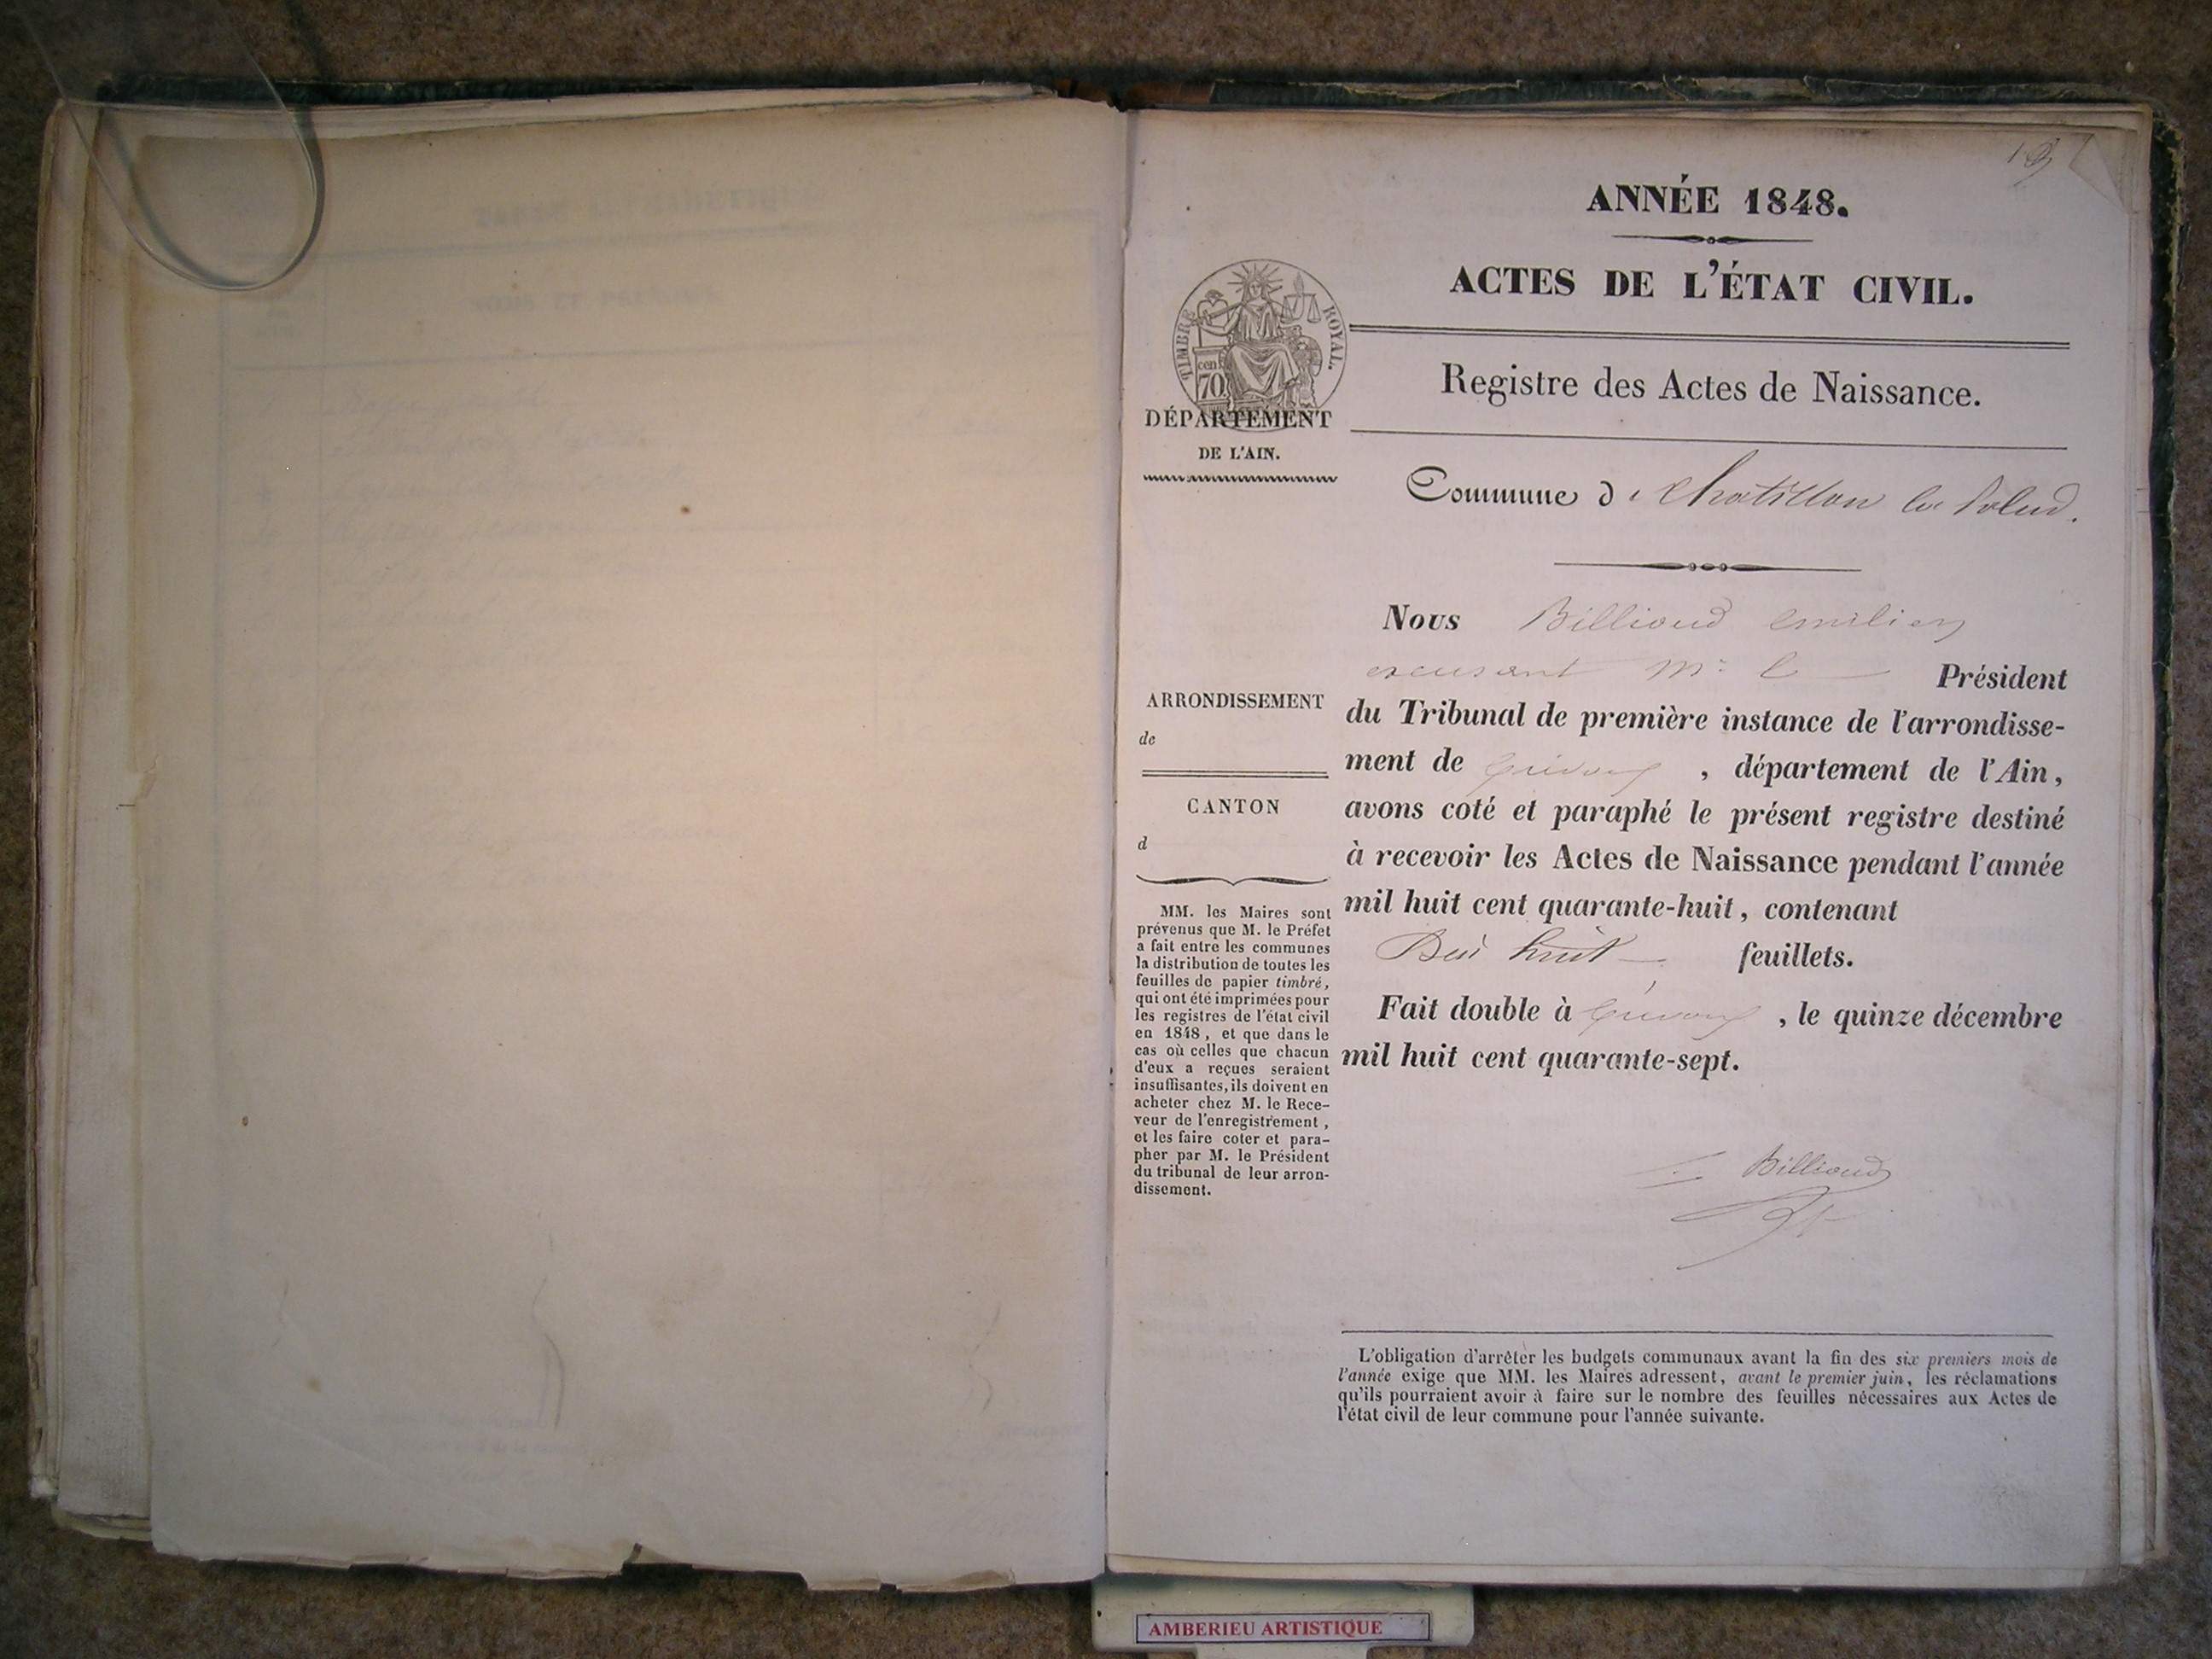 ANNÉE 1848.
ACTES DE L'ÉTAT CIVIL.
TIMBRE ROYAL.
cen.
70
DÉPARTEMENT
DE L'AIN.
Registre des Actes de Naissance.
Commune de Chatillon la Palud.
Nous Billioud Emilien
Président
du Tribunal de première instance de l'arrondisse-
ment de , département de l'Ain,
avons coté et paraphé le présent registre destiné
à recevoir les Actes de Naissance pendant l'année
mil huit cent quarante-huit, contenant
huit feuillets.
Fait double à , le quinze décembre
mil huit cent quarante-sept.
Billioud
ARRONDISSEMENT
de
CANTON
d
MM. les Maires sont
prévenus que M. le Préfet
a fait entre les communes
la distribution de toutes les
feuilles de papier timbré,
qui ont été imprimées pour
les registres de l'état civil
en 1848, et que dans le
cas où celles que chacun
d'eux a reçues seraient
insuffisantes, ils doivent en
acheter chez M. le Rece-
veur de l'enregistrement,
et les faire coter et para-
pher par M. le Président
du tribunal de leur arron-
dissement.
L'obligation d'arrêter les budgets communaux avant la fin des six premiers mois de
l'année exige que MM. les Maires adressent, avant le premier juin, les réclamations
qu'ils pourraient avoir à faire sur le nombre des feuilles nécessaires aux Actes de
l'état civil de leur commune pour l'année suivante.
AMBERIEU ARTISTIQUE